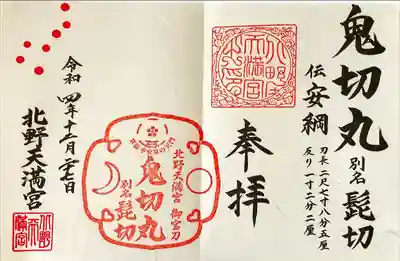 鬼切丸 別名 髭切
伝 安綱
刀長 二尺七寸八分五厘
反り 一寸二分二厘
奉拝
北野天満宮 御宝刀
鬼切丸
別名 髭切
令和四年十二月二十七日
北野天満宮